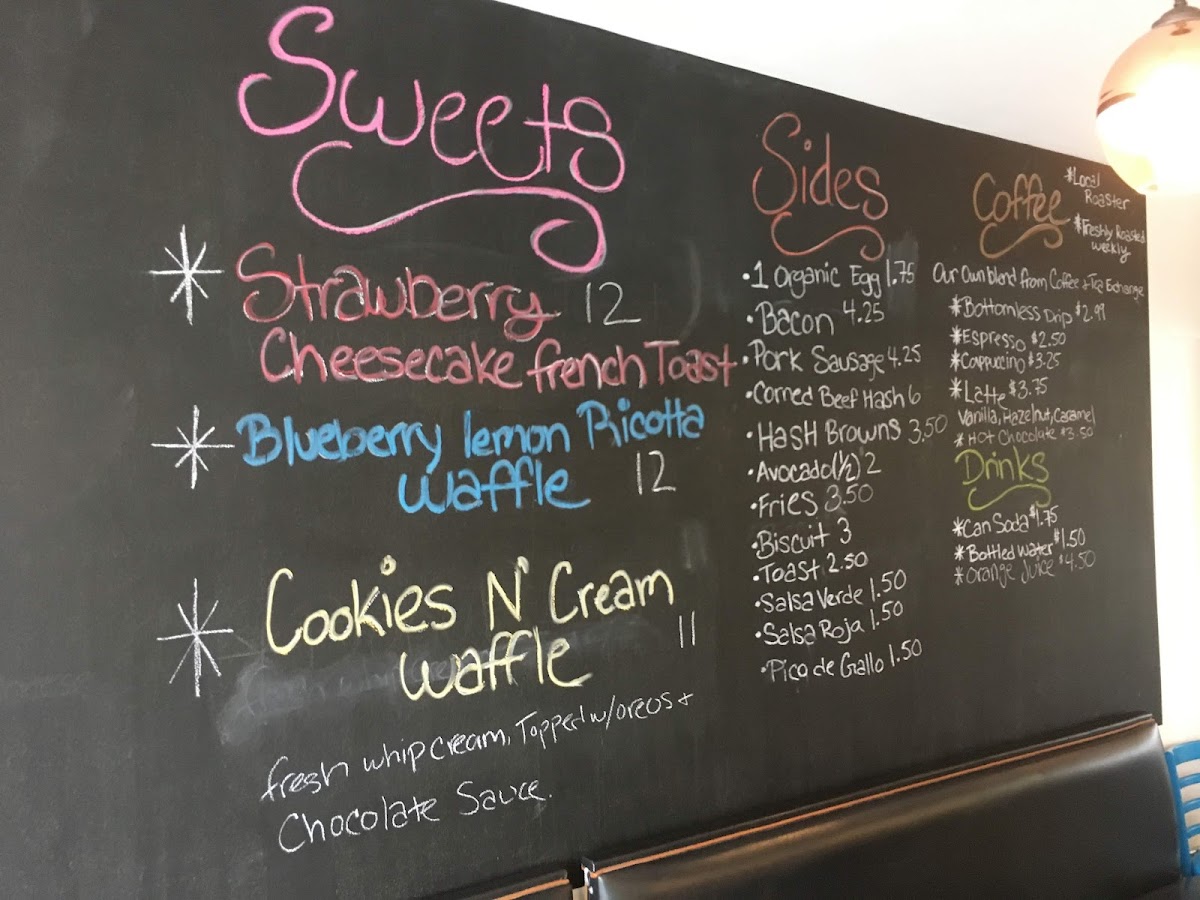 Sweets
Strawberry 12
Cheesecake french Toast
Blueberry lemon Ricotta
waffle 12
Cookies N' Cream
waffle 11
fresh whip cream, Topped w/oreos +
Chocolate Sauce.
Sides
•1 Organic Egg 1.75
•Bacon 4.25
•Pork Sausage 4.25
•Corned Beef Hash 6
•Hash Browns 3.50
•Avocado(½) 2
•Fries 3.50
•Biscuit 3
•Toast 2.50
•Salsa Verde 1.50
•Salsa Roja 1.50
•Pico de Gallo 1.50
Coffee
*Local
Roaster
*Freshly Roasted
weekly
Our Own blend from Coffee + Tea Exchange
*Bottomless Drip $2.99
*Espresso $2.50
*Cappuccino $3.25
*Latte $3.75
Vanilla, Hazelnut, Caramel
*Hot Chocolate $3.50
Drinks
*Can Soda $1.75
*Bottled water $1.50
*Orange Juice $4.50